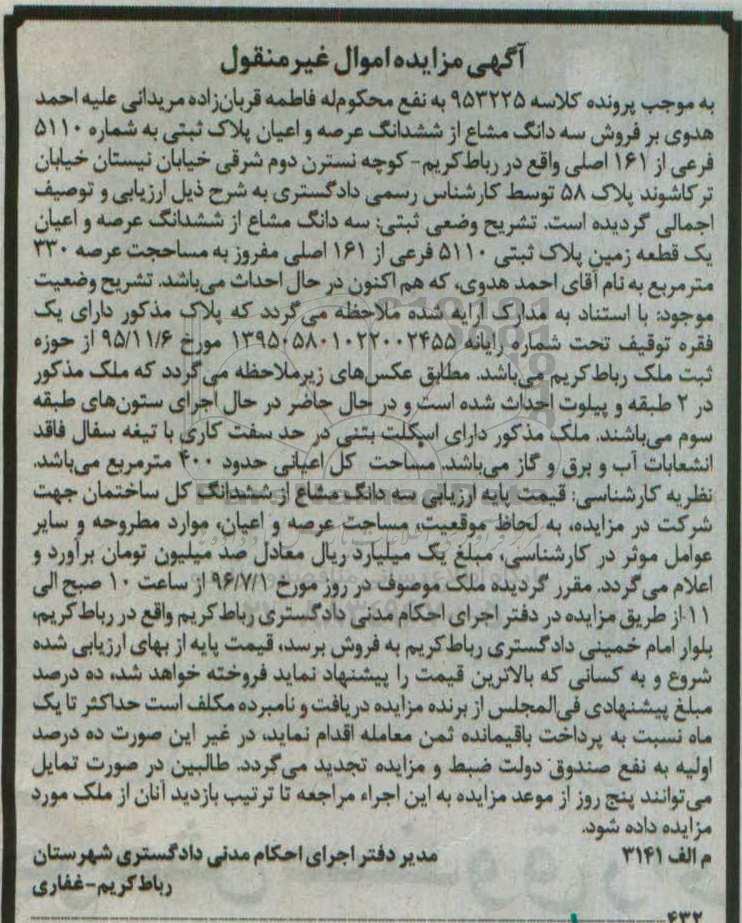 آگهی مزایده اموال غیرمنقول
به موجب پرونده کلاسه ۹۵۳۲۲۵ به نفع محکوم‌له فاطمه قربان‌زاده مریدانی علیه احمد
هدوی بر فروش سه دانگ مشاع از ششدانگ عرصه و اعیان پلاک ثبتی به شماره ۵۱۱۰
فرعی از ۱۶۱ اصلی واقع در رباط‌کریم- کوچه نسترن دوم شرقی خیابان نیستان خیابان
ترکاشوند پلاک ۵۸ توسط کارشناس رسمی دادگستری به شرح ذیل ارزیابی و توصیف
اجمالی گردیده است. تشریح وضعی ثبتی: سه دانگ مشاع از ششدانگ عرصه و اعیان
یک قطعه زمین پلاک ثبتی ۵۱۱۰ فرعی از ۱۶۱ اصلی مفروز به مساحجت عرصه ۳۳۰
مترمربع به نام آقای احمد هدوی، که هم اکنون در حال احداث می‌باشد. تشریح وضعیت
موجود: با استناد به مدارک ارایه شده ملاحظه می‌گردد که پلاک مذکور دارای یک
فقره توقیف تحت شماره رایانه ۱۳۹۵۰۵۸۰۱۰۲۲۰۰۲۴۵۵ مورخ ۹۵/۱۱/۶ از حوزه
ثبت ملک رباط‌کریم می‌باشد. مطابق عکس‌های زیرملاحظه می‌گردد که ملک مذکور
در ۲ طبقه و پیلوت احداث شده است و در حال حاضر در حال اجرای ستون‌های طبقه
سوم می‌باشند. ملک مذکور دارای اسکلت بتنی در حد سفت کاری با تیغه سفال فاقد
انشعابات آب و برق و گاز می‌باشد. مساحت کل اعیانی حدود ۴۰۰ مترمربع می‌باشد.
نظریه کارشناسی: قیمت پایه ارزیابی سه دانگ مشاع از ششدانگ کل ساختمان جهت
شرکت در مزایده، به لحاظ موقعیت، مساحت عرصه و اعیان، موارد مطروحه و سایر
عوامل موثر در کارشناسی، مبلغ یک میلیارد ریال معادل صد میلیون تومان برآورد و
اعلام می‌گردد. مقرر گردیده ملک موصوف در روز مورخ ۹۶/۷/۱ از ساعت ۱۰ صبح الی
۱۱ از طریق مزایده در دفتر اجرای احکام مدنی دادگستری رباط‌کریم واقع در رباط‌کریم،
بلوار امام خمینی دادگستری رباط‌کریم به فروش برسد، قیمت پایه از بهای ارزیابی شده
شروع و به کسانی که بالاترین قیمت را پیشنهاد نماید فروخته خواهد شد، ده درصد
مبلغ پیشنهادی فی‌المجلس از برنده مزایده دریافت و نامبرده مکلف است حداکثر تا یک
ماه نسبت به پرداخت باقیمانده ثمن معامله اقدام نماید، در غیر این صورت ده درصد
اولیه به نفع صندوق دولت ضبط و مزایده تجدید می‌گردد. طالبین در صورت تمایل
می‌توانند پنج روز از موعد مزایده به این اجراء مراجعه تا ترتیب بازدید آنان از ملک مورد
مزایده داده شود.
م الف ۳۱۴۱ مدیر دفتر اجرای احکام مدنی دادگستری شهرستان
رباط‌کریم-غفاری
۴۳۲